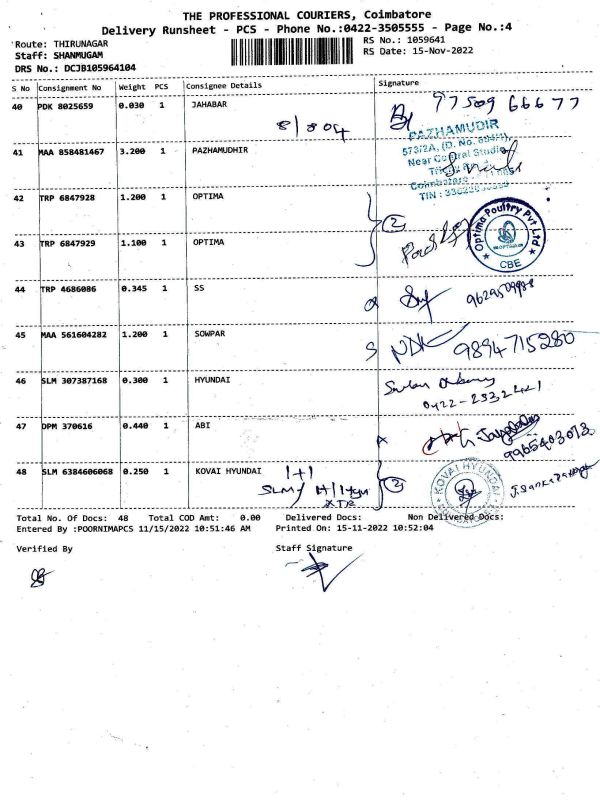 THE PROFESSIONAL COURIERS, Coimbatore
Delivery Runsheet - PCS - Phone No.:0422-3505555 - Page No.:4
Route: THIRUNAGAR
RS No.: 1059641
Staff: SHANMUGAM
RS Date: 15-Nov-2022
DRS No.: DCJB105964104
S No Consignment No Weight PCS Consignee Details Signature
40 PDK 8025659 0.030 1 JAHABAR
97509 66677
8/804
41 MAA 858481467 3.200 1 PAZHAMUDHIR
PAZHAMUDIR
573/2A, (D. No.
Near Central Studio
Coimbatore
TIN :
42 TRP 6847928 1.200 1 OPTIMA
2
Optima Poultry Pvt Ltd
CBE
43 TRP 6847929 1.100 1 OPTIMA
44 TRP 4686086 0.345 1 SS
45 MAA 561604282 1.200 1 SOWPAR
9894715280
46 SLM 307387168 0.300 1 HYUNDAI
0422-2332421
47 DPM 370616 0.440 1 ABI
9965403013
48 SLM 6384606068 0.250 1 KOVAI HYUNDAI
1+1
SLM/
2
KOVAI HYUNDAI
Total No. Of Docs: 48 Total COD Amt: 0.00 Delivered Docs: Non Delivered Docs:
Entered By :POORNIMAPCS 11/15/2022 10:51:46 AM Printed On: 15-11-2022 10:52:04
Verified By Staff Signature